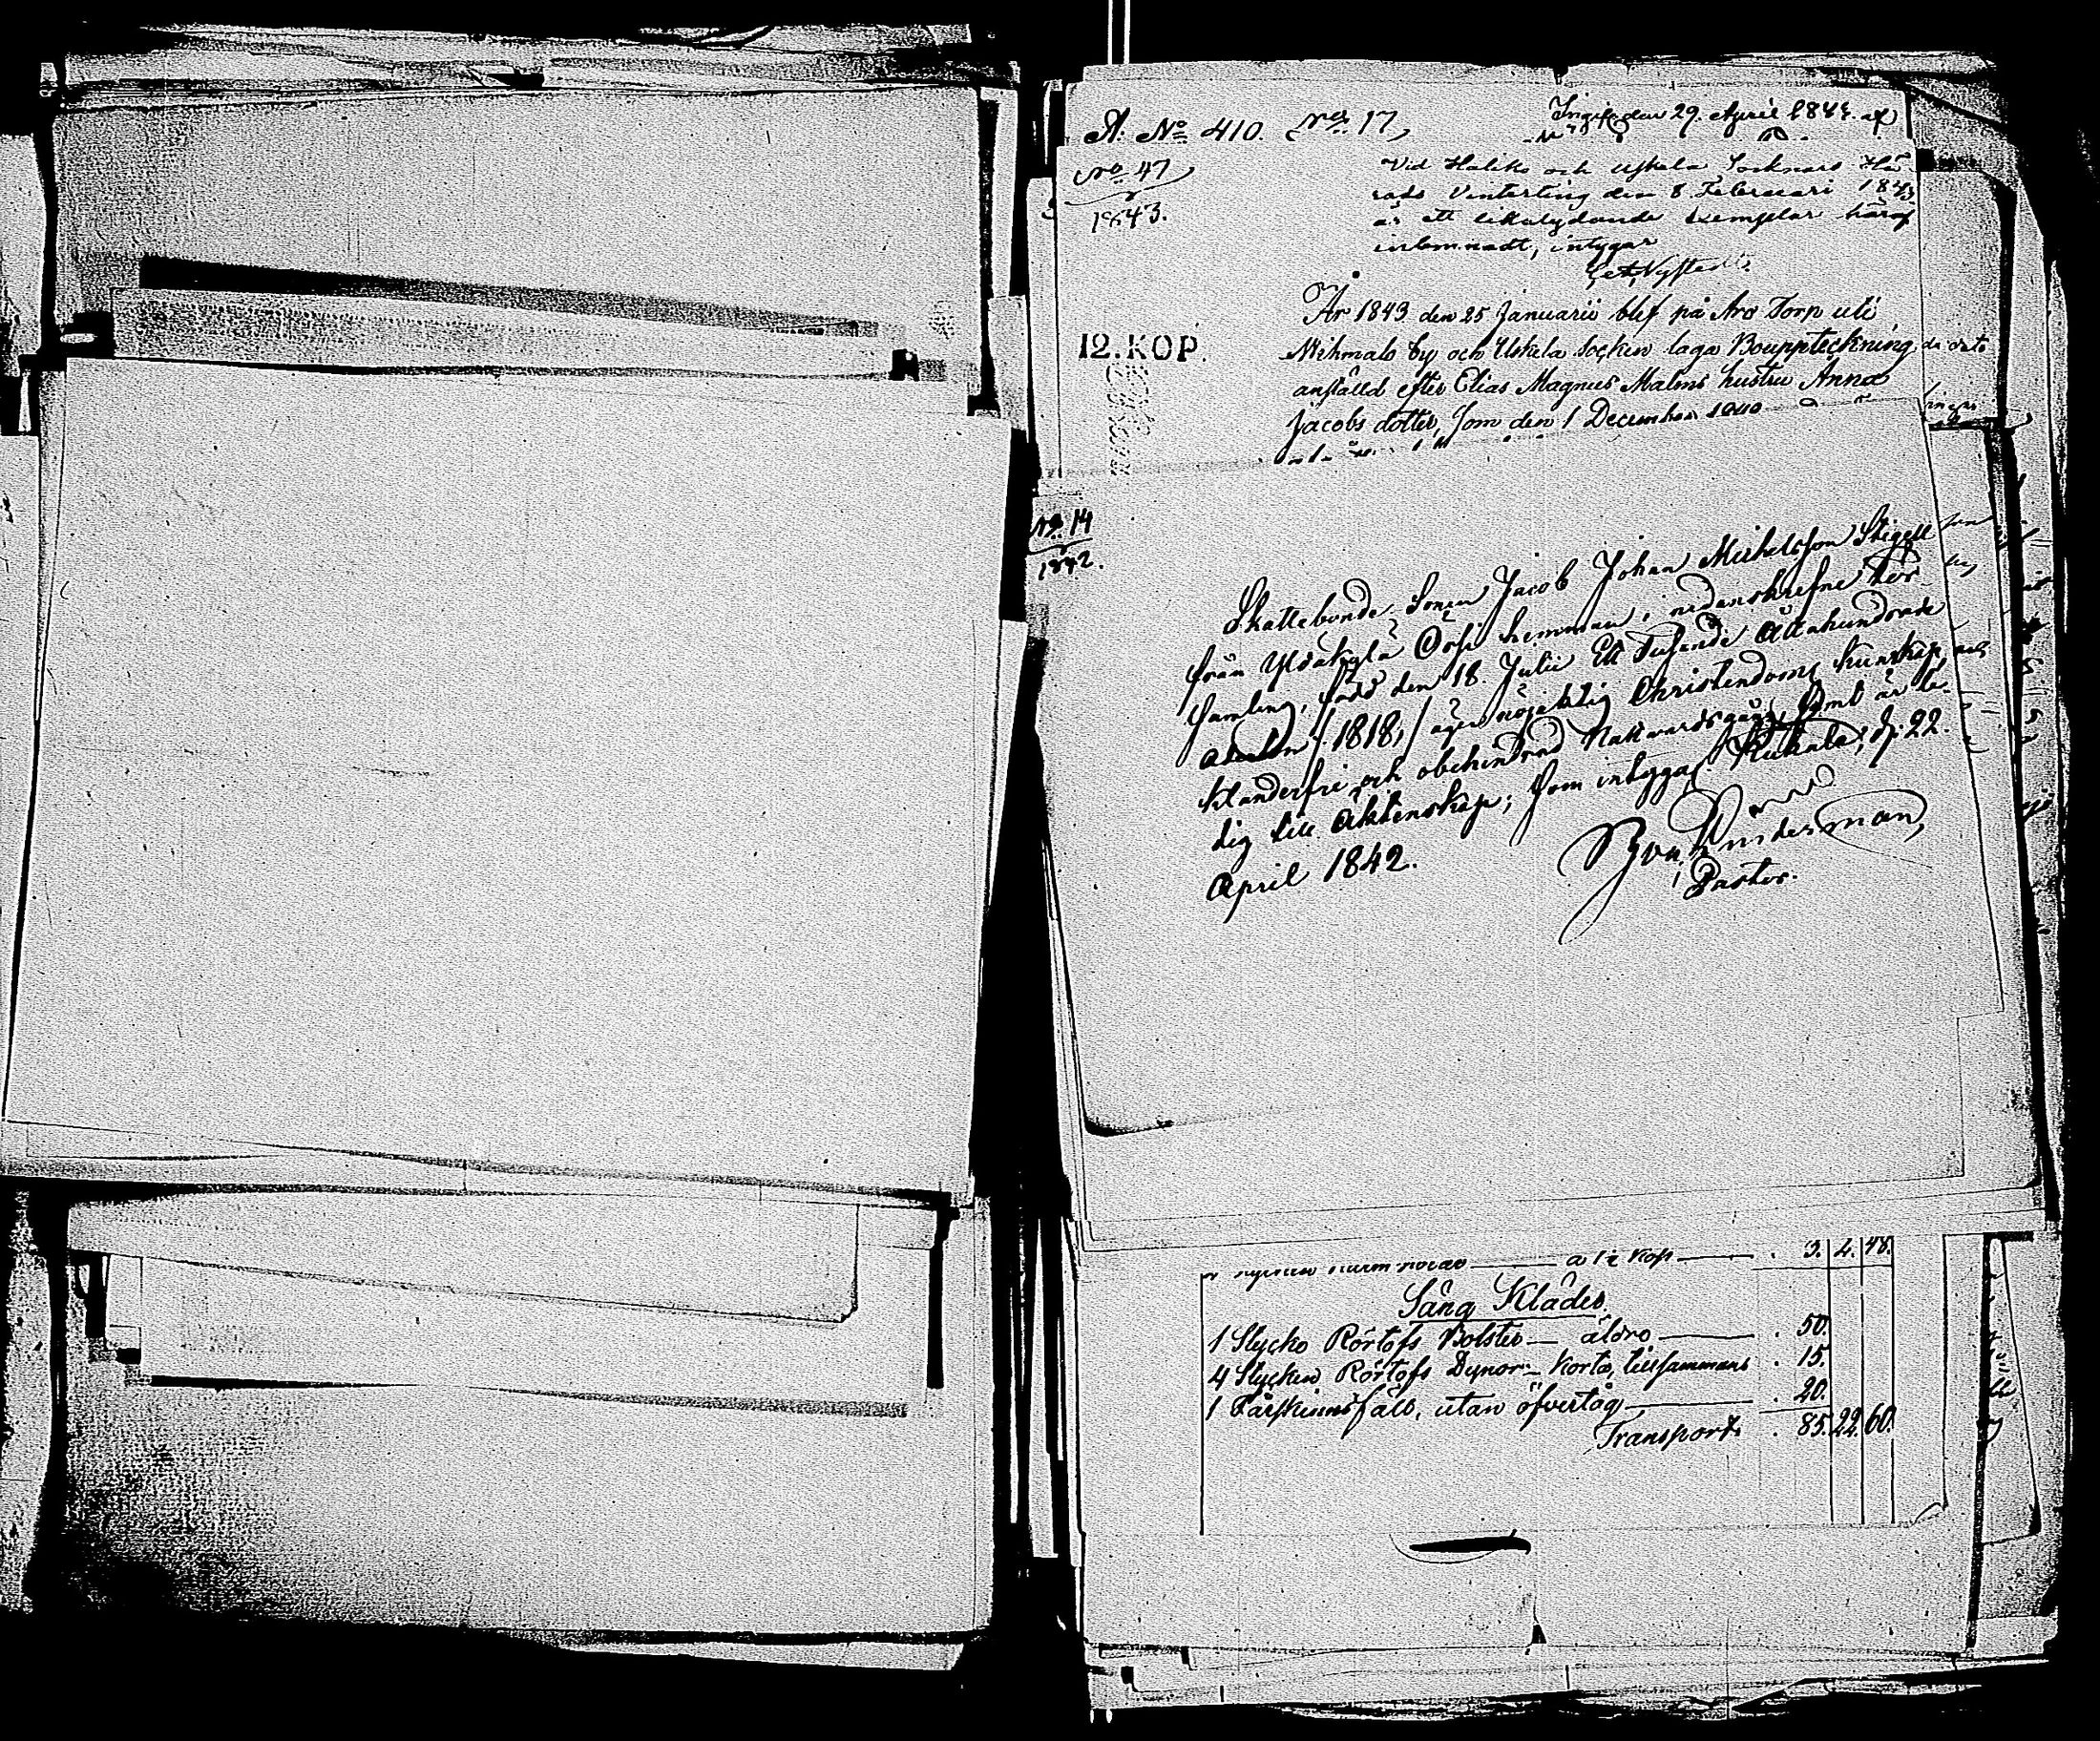 A: No 410. No 17,
Ingif. den 29. April 1844. af
No 47
1843.
Vid Haliko och Uskela Socknars Hä
rads Vinterting den 8 Februari 1843
är ett likalydande Exemplar häraf
inlemnadt, intygar
12. KOP.
År 1843 den 25 Januarii blef på Aro Torp uti
Mihmalo by och Uskela Socken laga Bouppteckning
anställd efter Elias Magnus Malms hustru Anna
Jacobs dotter, som den 1 December 1840
No 14
1842.
Skattebonde Sonen Jacob Johan Michelsson Stigell
från Yliskylä hemman, i nedanskrefne För-
samling, född den 18. Julii Ett Tusende Åttahundrade
Aderton /:1818,:/ äger nöjaktig Christendoms kunskap,
klanderfri och obehindrad Nattvardsgång, samt är le-
dig till Äktenskap; som intygar. d. 22.
April 1842.
Pastor.
à 12 Kop 3. 2. 48.
Säng Kläder.
1 Stycke Rörtofs Bolster äldre . 50.
4 Stycken Rörtofs Dynor korta, tillsammans . 15.
1 Fårskinnsfäll, utan öfvertåg . 20.
Transport . 85. 22. 60.